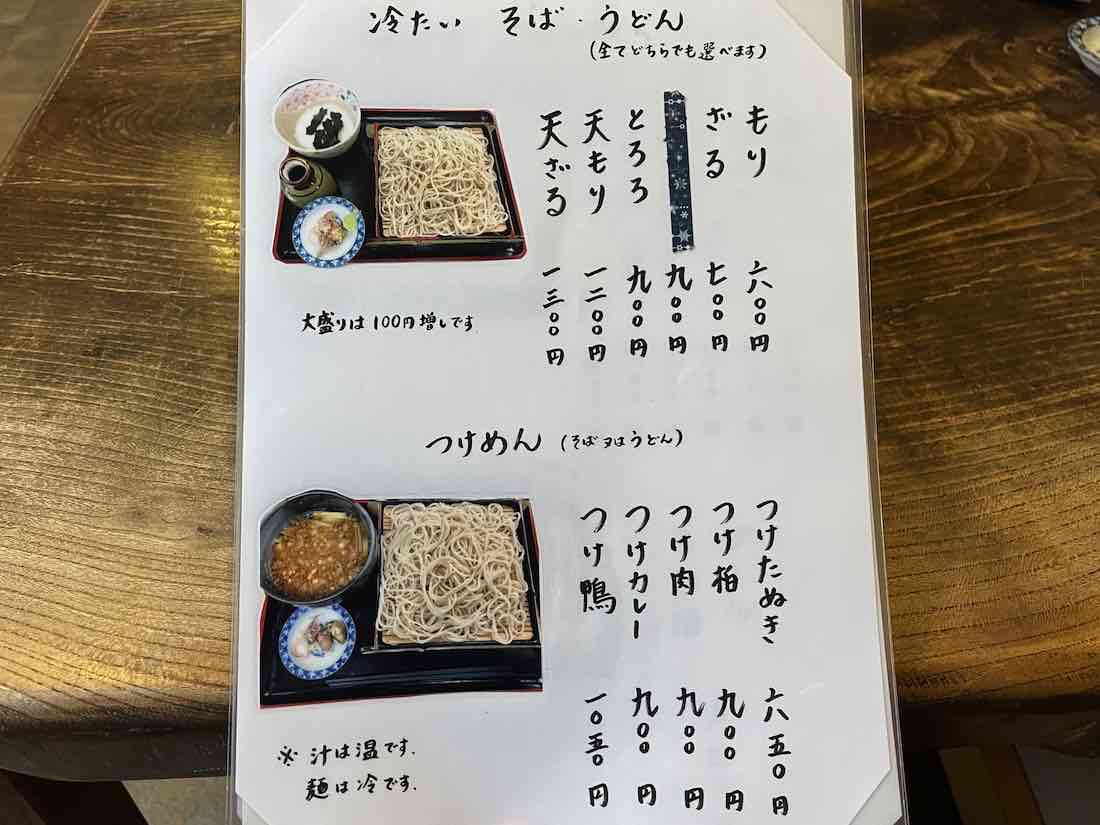 冷たい そば・うどん
(全てどちらでも選べます)
もり 六〇〇円
ざる 七〇〇円
九〇〇円
とろろ 九〇〇円
天もり 一二〇〇円
天ざる 一三〇〇円
大盛りは100円増しです
つけめん (そば又はうどん)
つけたぬき 六五〇円
つけ柏 九〇〇円
つけ肉 九〇〇円
つけカレー 九〇〇円
つけ鴨 一〇五〇円
※汁は温です.
麺は冷です.